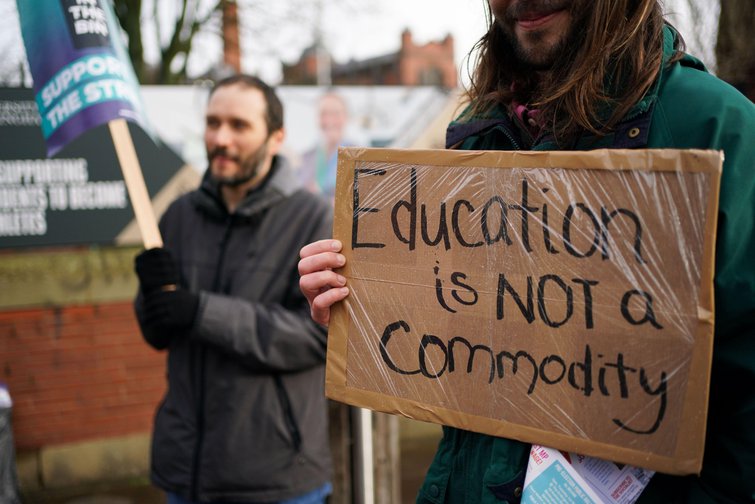 THE BIN
SUPPORT
THE STR
SUPPORTING
DENTS TO BECOME
Education
is NOT a
Commodity